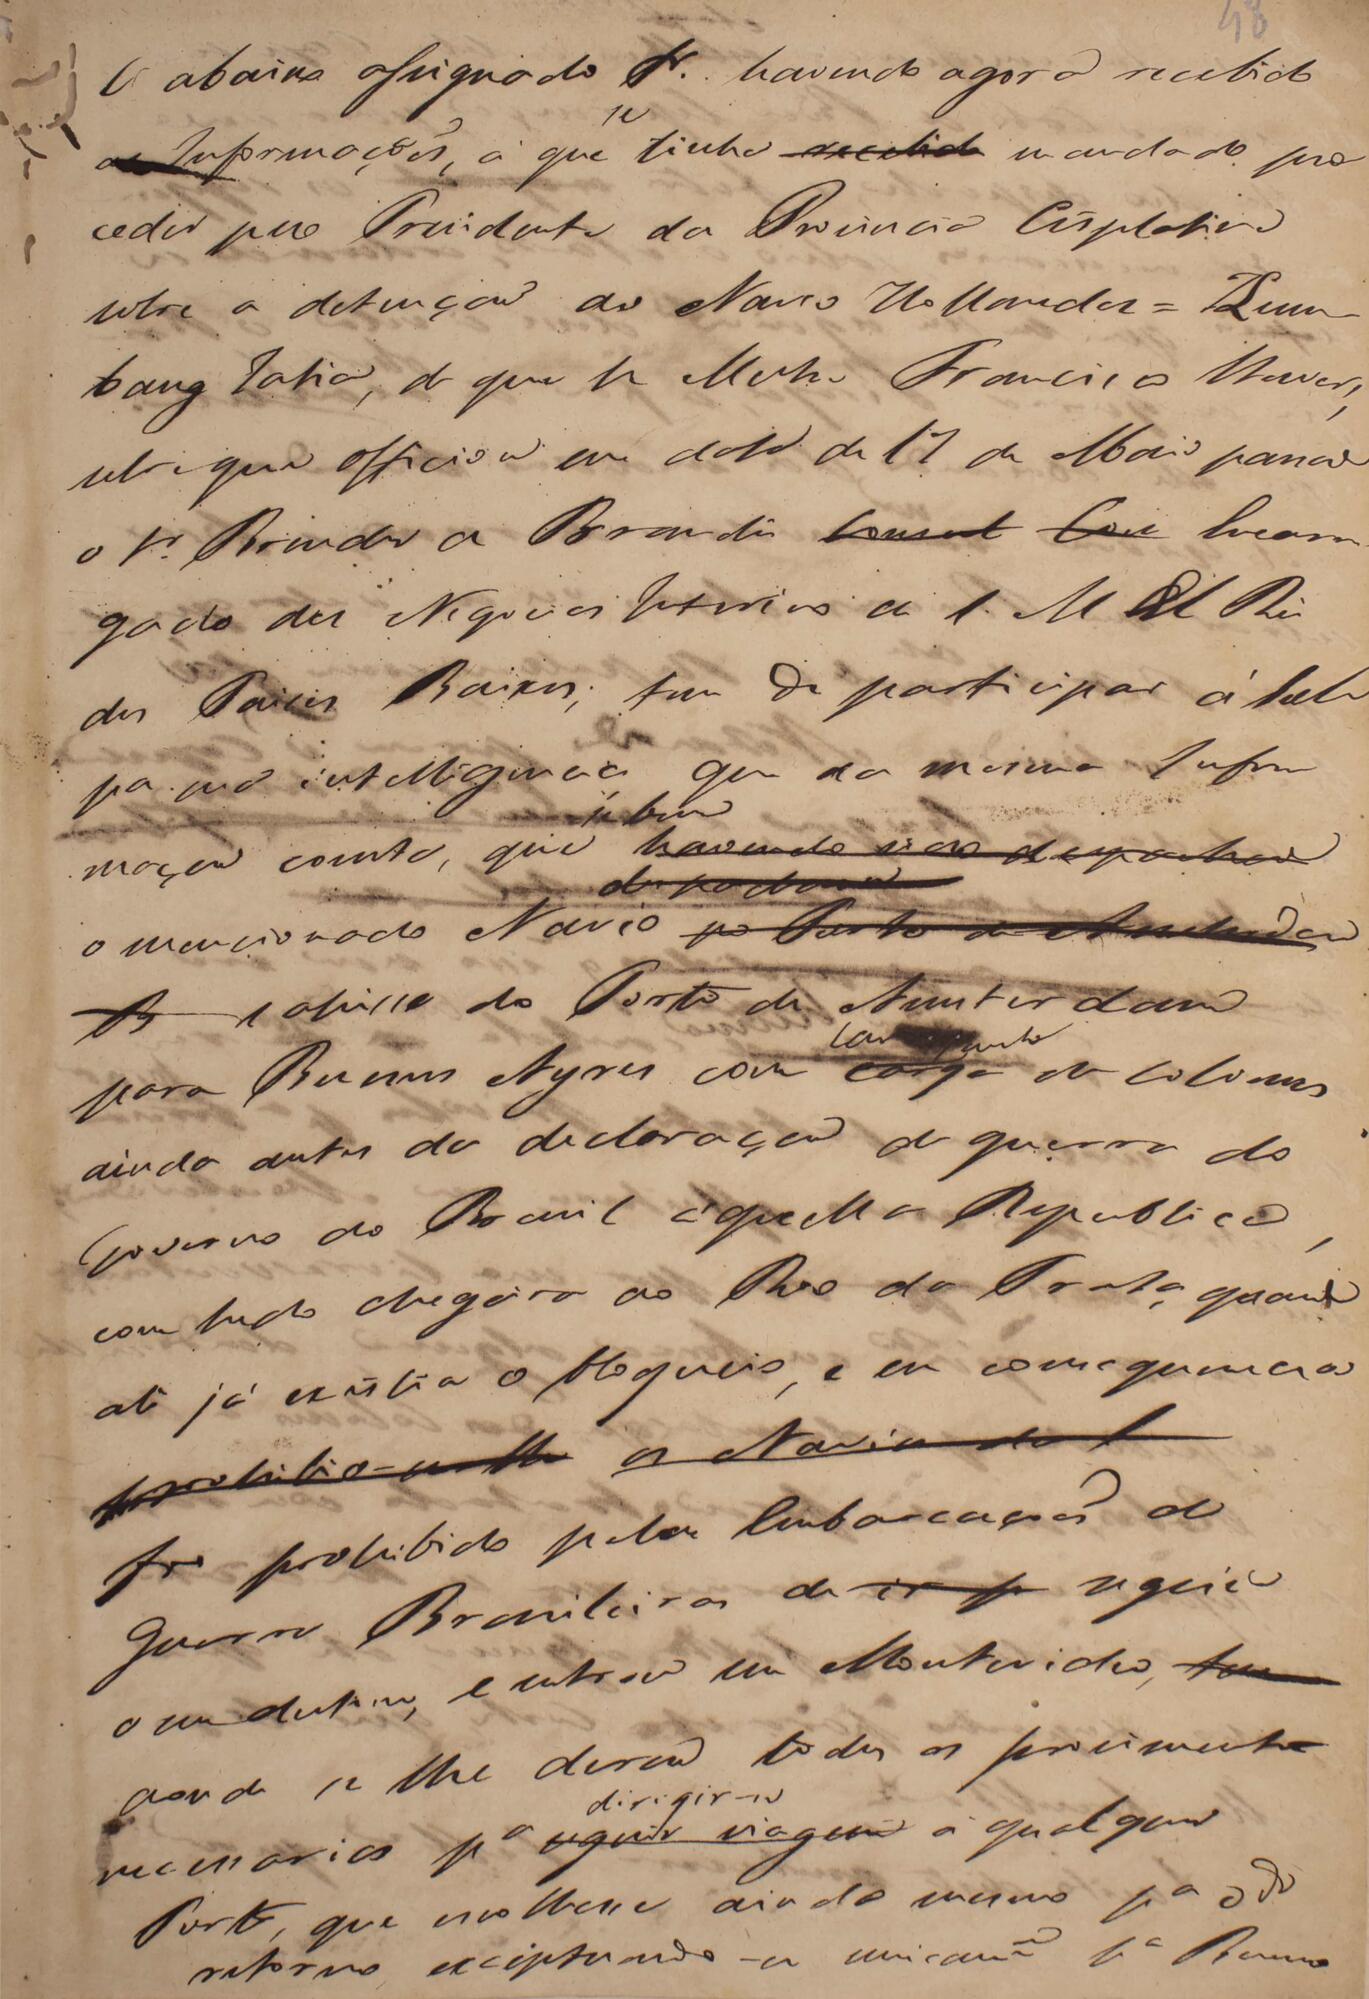 48
O abaixo assignado &. havendo agora recebido
as Informações, á que se tinha recebido mandado pro
ceder pelo Presidente da Provincia Cisplatina
sobre a detenção do Navio Hollandez =
bang Jatia, de que he Mestre Francisco
sobre que officiou em data de 17 de Maio passado
o Sr. Brender a Brandis Consul Con Encarre
gado dos Negocios Interino de S. M. El Rei
dos Paizes Baixos; tem de participar á
pa sua intelligencia, que da mesma Infor
mação consta, que se bem havendo sido despachado
despachado
o mencionado Navio no Porto de Amsterdam
B sahisse do Porto de Amsterdam
para Buenos Ayres com carga de colonos
ainda antes da declaração de guerra do
Governo do Brasil áquella Republica,
com tudo chegára ao Rio da Prata, quando
ali já existia o bloqueio, e em consequencia
prohibio-se-lhe os Navios de
foi prohibido pelas Embarcações de
Guerra Brasileiras de ir p seguir
o seu destino, e entrou em Montevideo,
aonde se lhe derão todos os provimentos
necessarios pa dirigir-se seguir viagem a qualquer
Porto, que escolhesse ainda mesmo pa o do
retorno exceptuando-se unicamte pa Buenos